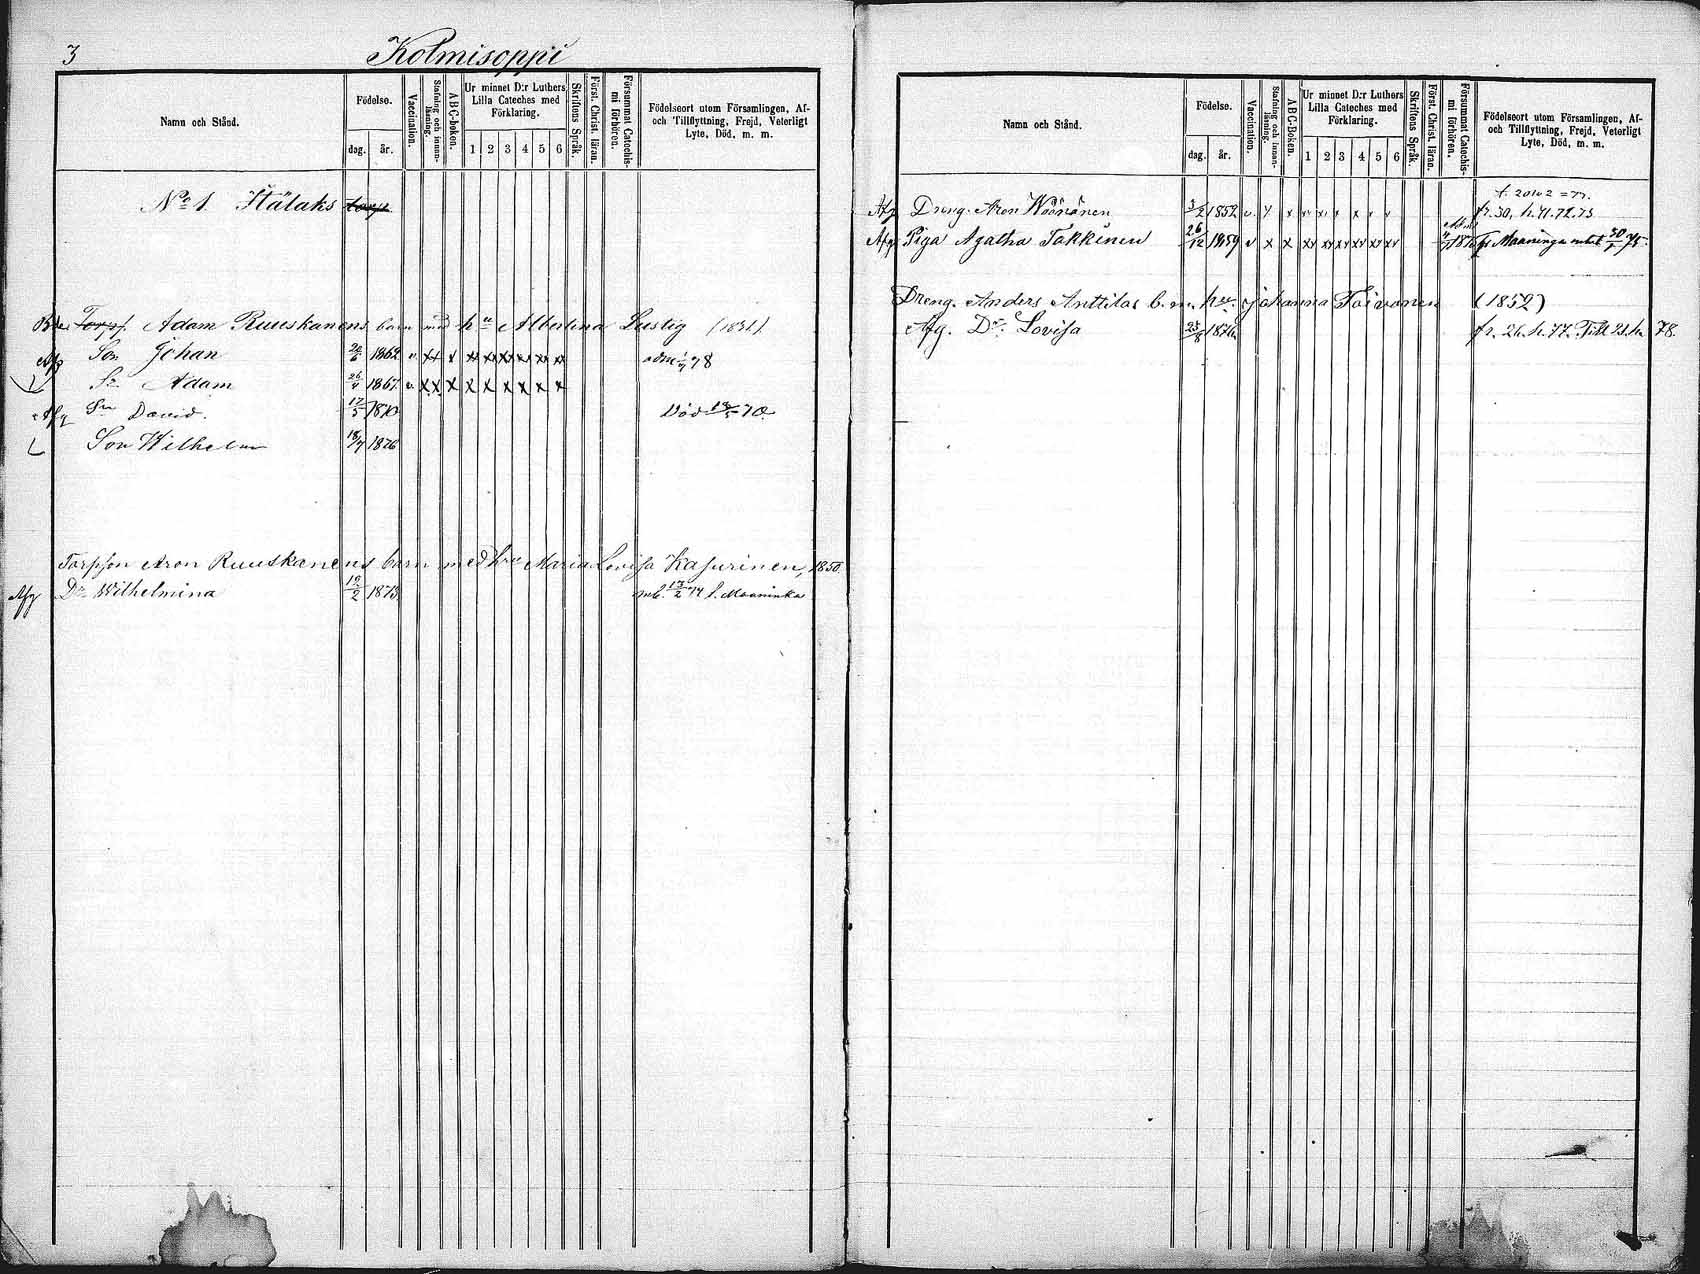 3 Kolmisoppi
Namn och Stånd.
Födelse.
dag. år.
Vaccination.
Stafning och innan-läsning.
A B C-boken.
Ur minnet D:r Luthers Lilla Cateches med Förklaring.
1 2 3 4 5 6
Skriftens Språk.
Först. Christ. läran.
Försummat Catechis-mi förhören.
Födelseort utom Församlingen, Af- och Tillflyttning, Frejd, Veterligt Lyte, Död, m. m.
No 1. Hälaks torp
Torpf. Adam Ruuskanens barn med hu Albertina Lustig (1831)
Afg Son Johan 20/6 1862 v.
Sn Adam 26/4 1867 v.
Afg Sn David. 17/5 1870 Död 70.
Son Wilhelm 18/7 1876
Torpson Aron Ruuskanens barn med hru Maria Lovisa Kasurinen, 1850.
Afg Dr Wilhelmina 12/2 1873 mb. 17/2 74 t. Maaninka
Namn och Stånd.
Födelse.
dag. år.
Vaccination.
Stafning och innan-läsning.
A B C-Boken.
Ur minnet D:r Luthers Lilla Cateches med Förklaring.
1 2 3 4 5 6
Skriftens Språk.
Först. Christ. läran.
Försummat Catechis-mi förhören.
Födelseort utom Församlingen, Af- och Tillflyttning, Frejd, Veterligt Lyte, Död, m. m.
Afg Dreng. Aron Väänänen 3/2 1852 v. fr. 30, h. 71. 72. 73
Afg Piga Agatha Takkinen 26/12 1859 v fr Maaninga mbet 30/1 75.
Dreng. Anders Anttilas b. m. hu. Johanna Toivonen (1852)
Afg. Dr. Lovisa 25/8 1876 fr. 26. h. 77. Till 21. h 78.